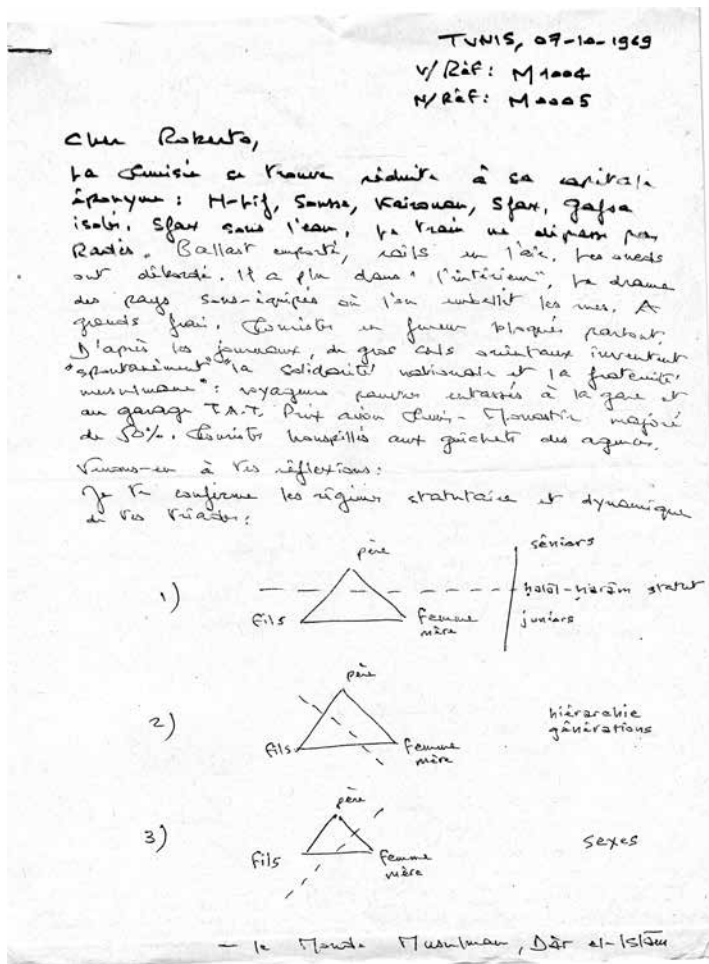 TUNIS, 07-10-1969
V/Réf: M1004
N/Réf: M0005
Cher Roberto,
La Tunisie se trouve réduite à sa capitale
éponyme : H-Lif, Sousse, Kairouan, Sfax, Gafsa
isolés. Sfax sous l'eau, Le train ne dépasse pas
Radès. Ballast emporté, rails en l'air. Les oueds
ont débordé. Il a plu dans "l'intérieur", Le drame
des pays sous-équipés où l'on embellit les rues. A
grands frais. Touristes en fureur bloqués partout.
D'après les journaux, de gros cals orientaux inventent
"spontanément" "la solidarité nationale et la fraternité
musulmane" : voyageurs pauvres entassés à la gare et
au garage T.A.T. Prix avion Tunis - Monastir majoré
de 50%. Touristes houspillés aux guichets des agences.
Venons-en à tes réflexions :
Je te confirme les régimes statutaire et dynamique
de tes triades :
1)
père
fils
femme
mère
séniors
halāl-harām statut
juniors
2)
père
fils
femme
mère
hiérarchie
générations
3)
père
fils
femme
mère
sexes
- le Monde Musulman, Dār el-Islām